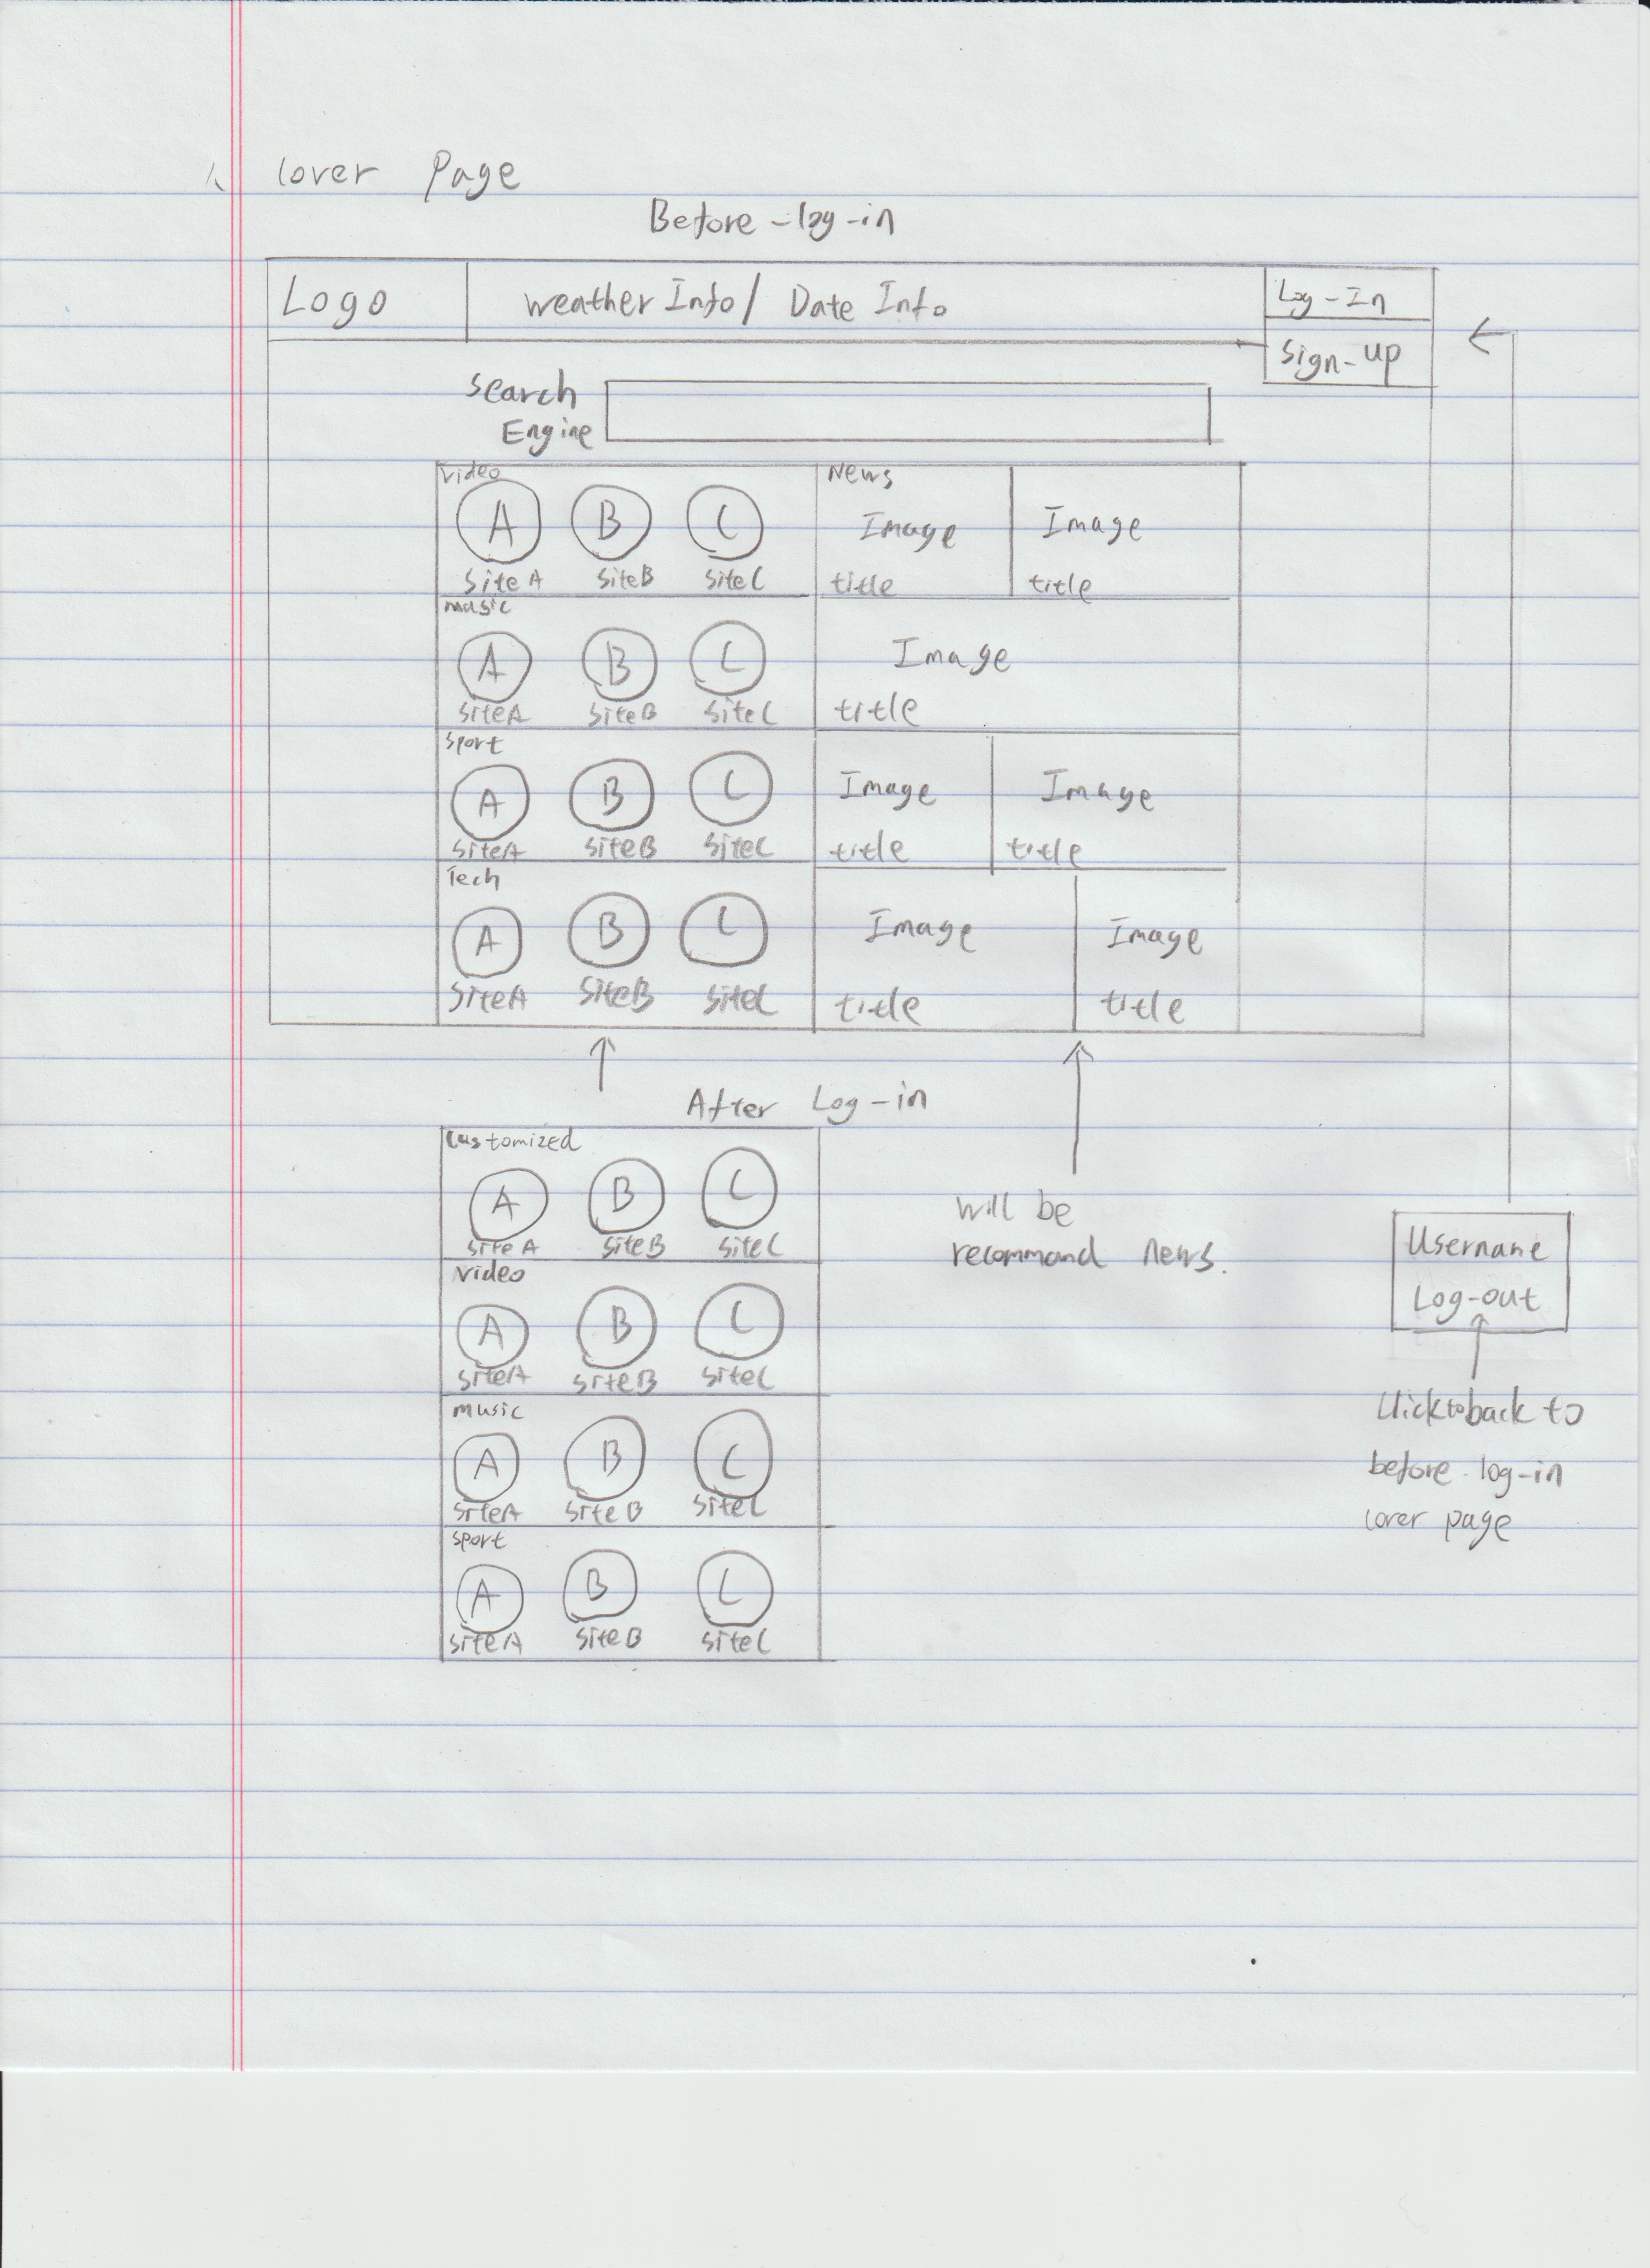 Cover Page
Before-log-in
Logo
Weather Info/ Date Info
Log-In
Sign-up
Search
Engine
Video
A B C
Site A SiteB SiteC
News
Image Image
title title
music
A B C
SiteA SiteB SiteC
Image
title
Sport
A B C
SiteA SiteB SiteC
Image Image
title title
Tech
A B C
SiteA SiteB SiteC
Image Image
title title
After Log-in
Customized
A B C
Site A SiteB SiteC
Video
A B C
SiteA SiteB SiteC
music
A B C
SiteA Site B SiteC
Sport
A B C
SiteA Site B SiteC
will be
recommand news.
Username
Log-out
Click to back to
before log-in
cover page